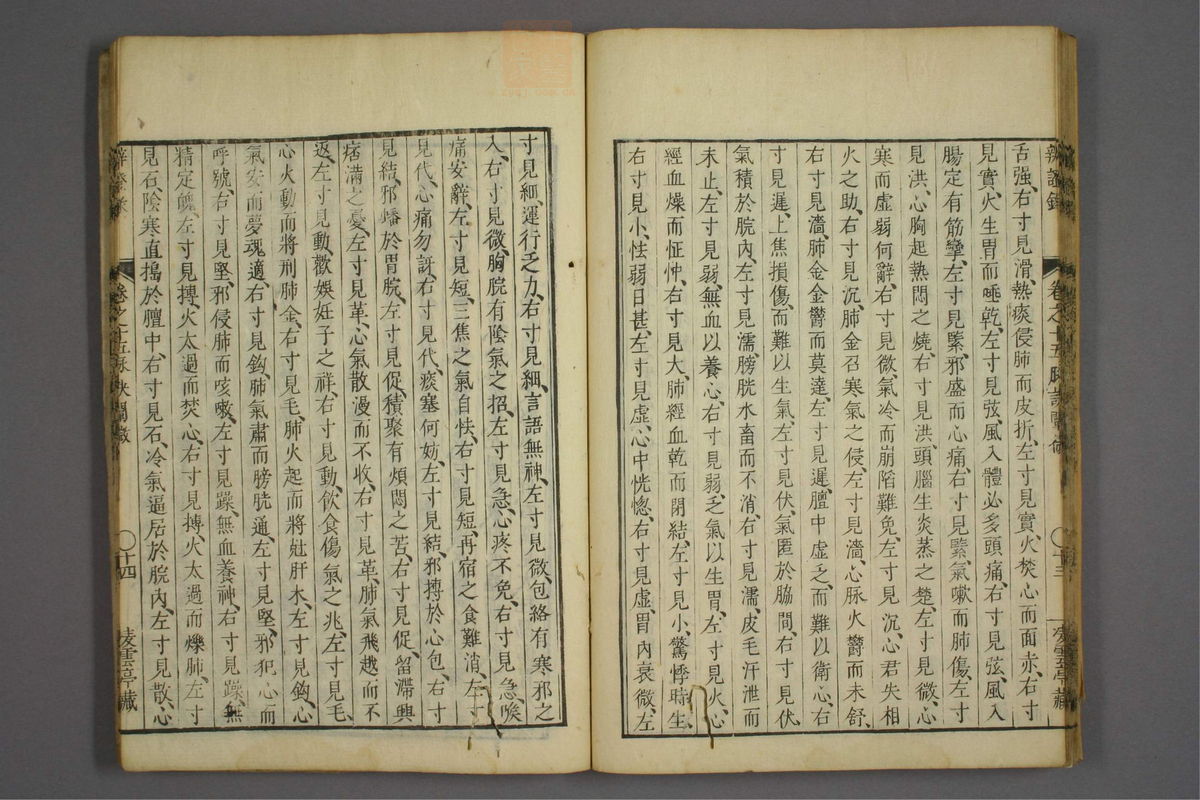 辨證錄 卷之十五脈訣闡微 十三
舌强、右寸見滑、熱痰侵肺而皮折、左寸見實、火焚心而面赤、右寸
見實、火生胃而唾乾、左寸見弦、風入體必多頭痛、右寸見弦、風入
腸定有筋攣、左寸見緊、邪盛而心痛、右寸見緊、氣嗽而肺傷、左寸
見洪、心胸起熱悶之燒、右寸見洪、頭腦生炎蒸之楚、左寸見微、心
寒而虛弱何辭、右寸見微、氣冷而崩陷難免、左寸見沉、心君失相
火之助、右寸見沉、肺金召寒氣之侵、左寸見濇、心脉火鬱而未舒、
右寸見濇、肺金金鬱而莫達、左寸見遲、膻中虛乏、而難以衛心、右
寸見遲、上焦損傷、而難以生氣、左寸見伏、氣匿於脇間、右寸見伏、
氣積於脘內、左寸見濡、膀胱水畜而不消、右寸見濡、皮毛汗泄而
未止、左寸見弱、無血以養心、右寸見弱、乏氣以生胃、左寸見大、心
經血燥而怔忡、右寸見大、肺經血乾而閉結、左寸見小、驚悸時生、
右寸見小、怯弱日甚、左寸見虛、心中恍惚、右寸見虛、胃內衰微、左
寸見細、運行乏力、右寸見細、言語無神、左寸見微、包絡有寒邪之
入、右寸見微、胸脘有陰氣之招、左寸見急、心疼不免、右寸見急、喉
痛安辭、左寸見短、三焦之氣自怯、右寸見短、再宿之食難消、左寸
見代、心痛勿訝、右寸見代、痰塞何妨、左寸見結、邪搏於心包、右寸
見結、邪蟠於胃脘、左寸見促、積聚有煩悶之苦、右寸見促、留滯興
痞滿之憂、左寸見革、心氣散漫而不收、右寸見革、肺氣飛越而不
返、左寸見動、歡娛妊子之祥、右寸見動、飲食傷氣之兆、左寸見毛、
心火動而將刑肺金、右寸見毛、肺火起而將尅肝木、左寸見鈎、心
氣安而夢魂適、右寸見鈎、肺氣肅而膀胱通、左寸見堅、邪犯心而
呼號、右寸見堅、邪侵肺而咳嗽、左寸見躁、無血養神、右寸見躁、無
精定魄、左寸見搏、火太過而焚心、右寸見搏、火太過而爍肺、左寸
見石、陰寒直搗於膻中、右寸見石、冷氣逼居於脘內、左寸見散、心
卷之十五脉訣闡微 十四 凌雲亭藏